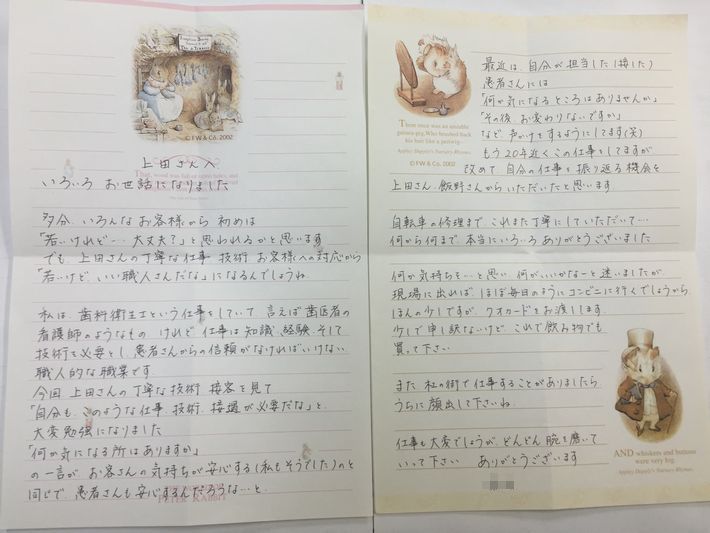 上田さんへ
いろいろ お世話になりました
多分、いろんなお客様から 初めは
「若いけれど… 大丈夫?」と思われるかと思います
でも 上田さんの丁寧な仕事 技術 お客様への対応から
「若いけど、いい職人さんだな」になるんでしょうね
私は、歯科衛生士という仕事をしていて 言えば歯医者の
看護師のようなもの けれど 仕事は知識、経験、そして
技術を必要とし 患者さんからの信頼がなければいけない
職人的な職業です
今回 上田さんの丁寧な技術 接客を見て
「自分も、このような仕事、技術、接遇が必要だな」と、
大変勉強になりました
「何か気になる所はありますか」
の一言が お客さんの気持ちが安心する(私もそうでした)のと
同じで 患者さんも安心するんだろうな…と、
PETER RABBIT
© FW & Co. 2002
最近は、自分が担当した(接した)
患者さんには
「何か気になるところはありませんか」
「その後、お変わりないですか」
など 声かけをするようにしてます(笑)
もう20年近くこの仕事をしてますが
改めて 自分の仕事を振り返る機会を
上田さん、飯野さんからいただいたと思います
自転車の修理まで、これまた丁寧にしていただいて…
何から何まで 本当にいろいろありがとうございました
何か気持ちを…と思い 何がいいかなーと迷いましたが
現場に出れば、ほぼ毎日のようにコンビニに行くでしょうから
ほんの少しですが、クオカードをお渡しします
少しで申し訳ないけど これで飲み物でも
買って下さい
また 杜の街で仕事することがありましたら
うちに顔出して下さいね
仕事も大変でしょうが、どんどん腕を磨いて
いって下さい ありがとうございます
There once was an amiable
guinea-pig, Who brushed back
his hair like a periwig—
Appley Dapply's Nursery Rhymes.
© FW & Co. 2002
AND whiskers and buttons
were very big.
Appley Dapply's Nursery Rhymes.